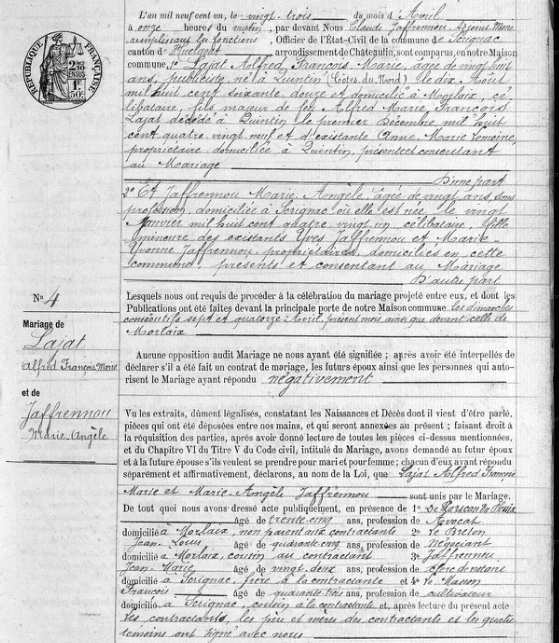 L'an mil neuf cent un, le vingt trois du mois d'Avril
à onze heures du matin, par devant Nous Claude Jaffrennou Adjoint Maire
remplissant les fonctions, Officier de l'État-Civil de la commune de Scrignac
canton d' Huelgoat, arrondissement de Châteaulin, sont comparus, en notre Maison
commune, 1º Lajat Alfred François Marie, âgé de vingt huit
ans, publiciste, né à Quintin (Côtes du Nord) le dix Août
mil huit cent soixante douze et domicilié à Morlaix, cé
libataire, fils majeur de feu Alfred Marie François
Lajat décédé à Quintin le premier Décembre mil huit
cent quatre vingt neuf et d'existante Anne Marie Lemoine,
propriétaire domiciliée à Quintin, présente et consentant
au Mariage
D'une part
2º Et Jaffrennou Marie Angèle âgée de vingt ans, sans
profession, domiciliée à Scrignac où elle est née le vingt
Janvier mil huit cent quatre vingt un célibataire, fille
mineure des existants Yves Jaffrennou et Marie-
Yvonne Jaffrennou, propriétaires, domiciliés en cette
commune, présents et consentant au Mariage
D'autre part
Lesquels nous ont requis de procéder à la célébration du mariage projeté entre eux, et dont les
Publications ont été faites devant la principale porte de notre Maison commune, les dimanches
consécutifs sept et quatorze Avril présent mois ainsi que devant celle de
Morlaix
Aucune opposition audit Mariage ne nous ayant été signifiée ; après avoir été interpellés de
déclarer s'il a été fait un contrat de mariage, les futurs époux ainsi que les personnes qui auto-
risent le Mariage ayant répondu négativement
Vu les extraits, dûment légalisés, constatant les Naissances et Décès dont il vient d'être parlé,
pièces qui ont été déposées entre nos mains, et qui seront annexées au présent ; faisant droit à
la réquisition des parties, après avoir donné lecture de toutes les pièces ci-dessus mentionnées
et du Chapitre VI du Titre V du Code civil, intitulé du Mariage, avons demandé au futur époux
et à la future épouse s'ils veulent se prendre pour mari et pour femme ; chacun d'eux ayant répondu
séparément et affirmativement, déclarons, au nom de la Loi, que Lajat Alfred François
Marie et Marie Angèle Jaffrennou sont unis par le Mariage.
De tout quoi nous avons dressé acte publiquement, en présence de 1º
âgé de trente cinq ans, profession de Avocat
domicilié à Morlaix, non parent aux contractants 2º Le Breton
Jean Louis âgé de quarante cinq ans, profession de Négociant
domicilié à Morlaix, cousin au contractant 3º Jaffrennou
Jean Marie âgé de vingt deux ans, profession de clerc de notaire
domicilié à Scrignac, frère à la contractante et 4º Le Manon
François âgé de quarante trois ans, profession de cultivateur
domicilié à Scrignac, cousin à la contractante et, après lecture du présent acte
les contractants, les père et mères des contractants et les quatre
témoins ont signé avec nous
RÉPUBLIQUE FRANÇAISE
Nº 4
Mariage de
Lajat
Alfred François Marie
et de
Jaffrennou
Marie Angèle